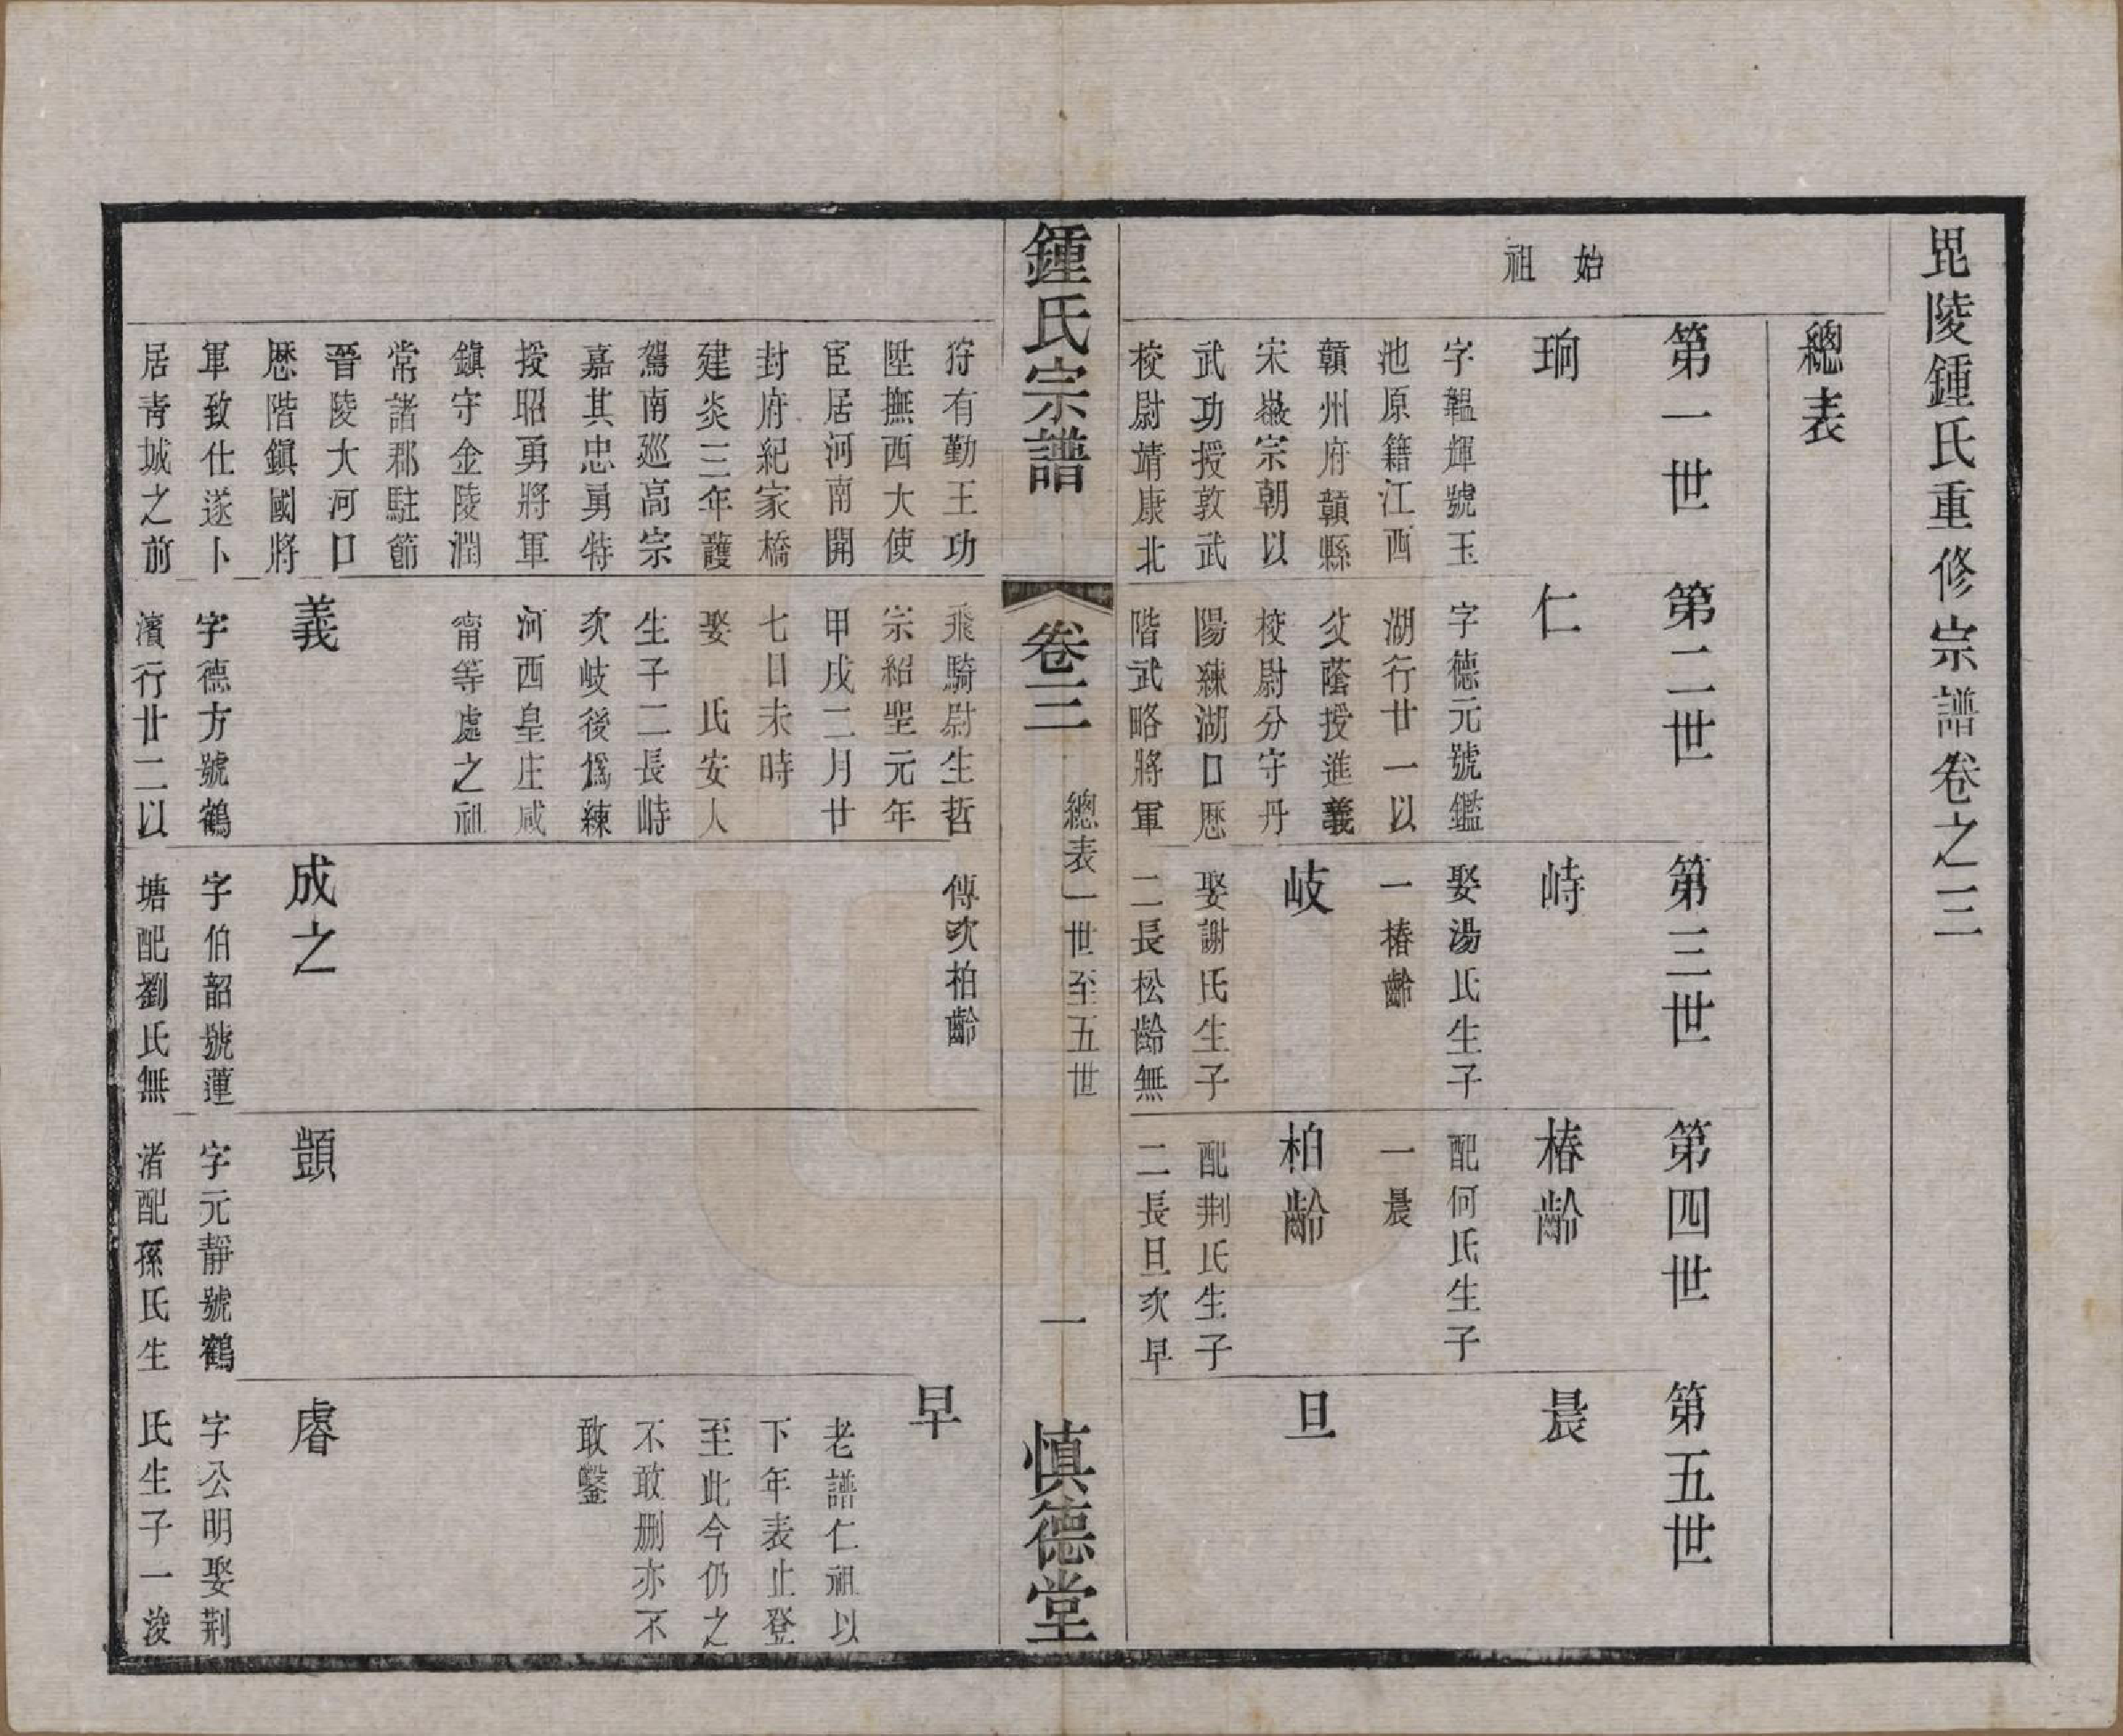 毘陵鍾氏重修宗譜卷之三
總表
始祖
第一世
珦
字韞輝號玉
池原籍江西
贛州府贛縣
宋徽宗朝以
武功授敦武
校尉靖康北
第二世
仁
字德元號鑑
湖行廿一以
父蔭授進義
校尉分守丹
陽練湖口歷
階武略將軍
第三世
峙
娶湯氏生子
一椿齡
岐
娶謝氏生子
二長松齡無
第四世
椿齡
配何氏生子
一晨
柏齡
配荆氏生子
二長旦次早
第五世
晨
旦
鍾氏宗譜
卷三
總表一世至五世
一
慎德堂
狩有勤王功
陞撫西大使
宦居河南開
封府紀家橋
建炎三年護
駕南巡高宗
嘉其忠勇特
授昭勇將軍
鎮守金陵潤
常諸郡駐節
晉陵大河口
歷階鎮國將
軍致仕遂卜
居青城之前
飛騎尉生哲
宗紹聖元年
甲戌二月廿
七日未時
娶　氏安人
生子二長峙
次岐後爲練
河西皇庄咸
甯等處之祖
義
字德方號鶴
濱行廿二以
傳次柏齡
成之
字伯韶號蓮
塘配劉氏無
顗
字元靜號鶴
渚配孫氏生
早
老譜仁祖以
下年表止登
至此今仍之
不敢删亦不
敢鑿
睿
字公明娶荆
氏生子一浚